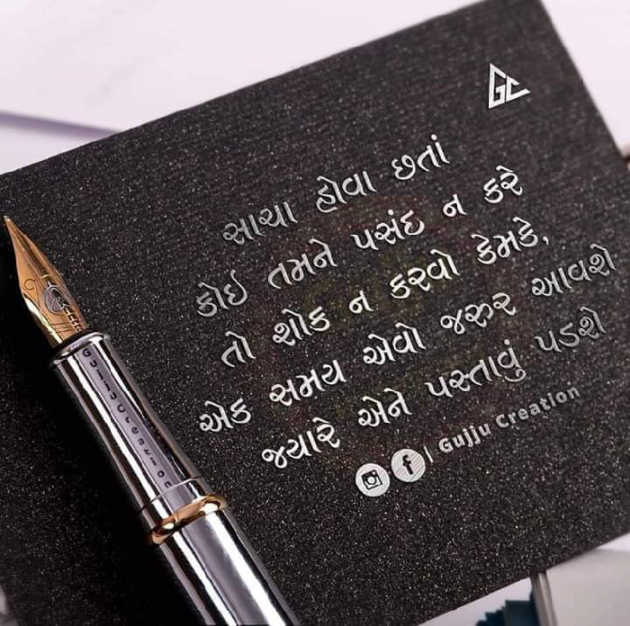 GC
સાચા હોવા છતાં
કોઈ તમને પસંદ ન કરે
તો શોક ન કરવો કેમકે,
એક સમય એવો જરુર આવશે
જ્યારે એને પસ્તાવું પડશે
| Gujju Creation
GujjuCreation